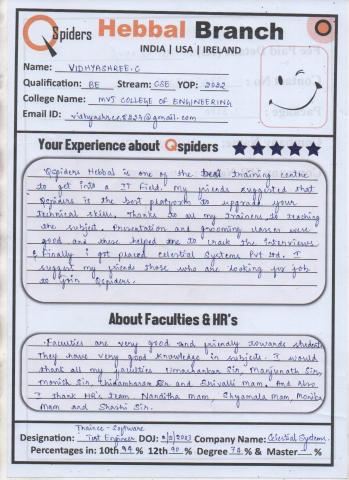 QSpiders Hebbal Branch
INDIA | USA | IRELAND
Name: VIDHYASHREE.C
Qualification: BE Stream: CSE YOP: 2022
College Name: MVJ COLLEGE OF ENGINEERING
Email ID: vidhyashree8224@gmail.com
Your Experience about Qspiders
Qspiders Hebbal is one of the best training centre
to get into a IT Field. My friends suggested that
Qspiders is the best platform to upgrade your
technical skills. Thanks to all my trainers to teaching
the subject. Presentation and grooming classes were
good and these helped me to crack the interviews
& Finally i got placed celestial Systems Pvt Ltd. I
suggest my friends those who are looking for job
to join Qspiders.
About Faculties & HR's
Faculties are very good and friendly towards student
They have very good knowledge in subjects. I would
thank all my faculties Umashankar Sir, Manjunath Sir,
Manish Sir, Chidambaram Sir and Shivalli Mam. And Also
I thank HR's team Nanditha Mam, Shyamala Mam, Monika
Mam and Shashi Sir.
Trainee - Software
Designation: Test Engineer DOJ: 2023 Company Name: Celestial Systems.
Percentages in: 10th 94 % 12th 90 % Degree 78 % & Master %